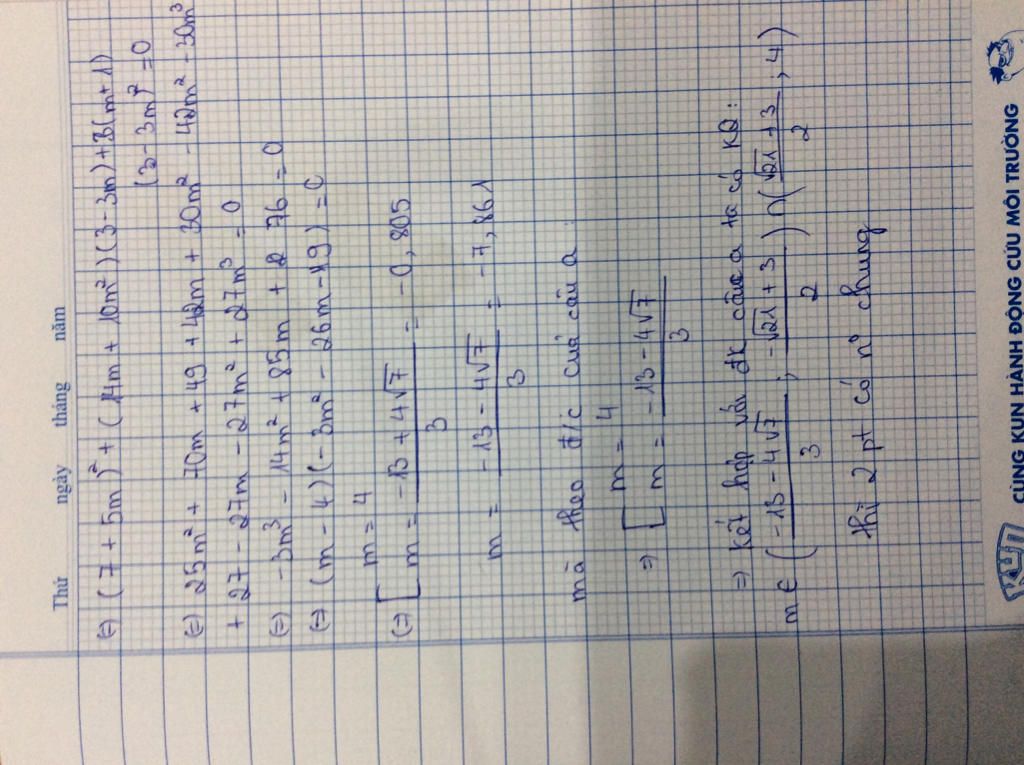 Thứ ngày tháng năm
(=) (7 + 5m)² + (14m + 10m²)(3 - 3m) + 3(m+1)
(3 - 3m)² = 0
(=) 25m² + 70m + 49 + 42m + 30m² - 42m² - 30m³
+ 27 - 27m - 27m² + 27m³ = 0
(=) -3m³ - 14m² + 85m + 76 = 0
(=) (m - 4)(-3m² - 26m - 19) = 0
(=) [ m = 4
m = -13 + 4√7 / 3 = -0,805
m = -13 - 4√7 / 3 = -7,861
mà theo đ/c của câu a :
=> [ m = 4
m = -13 - 4√7 / 3
=> kết hợp với đk câu a ta có KQ :
m ∈ ( -13 - 4√7 / 3 ; -√21 + 3 / 2 ) ∩ ( √21 + 3 / 2 , 4 )
thì 2 pt có n⁰ chung
KUN CÙNG KUN HÀNH ĐỘNG CỨU MÔI TRƯỜNG